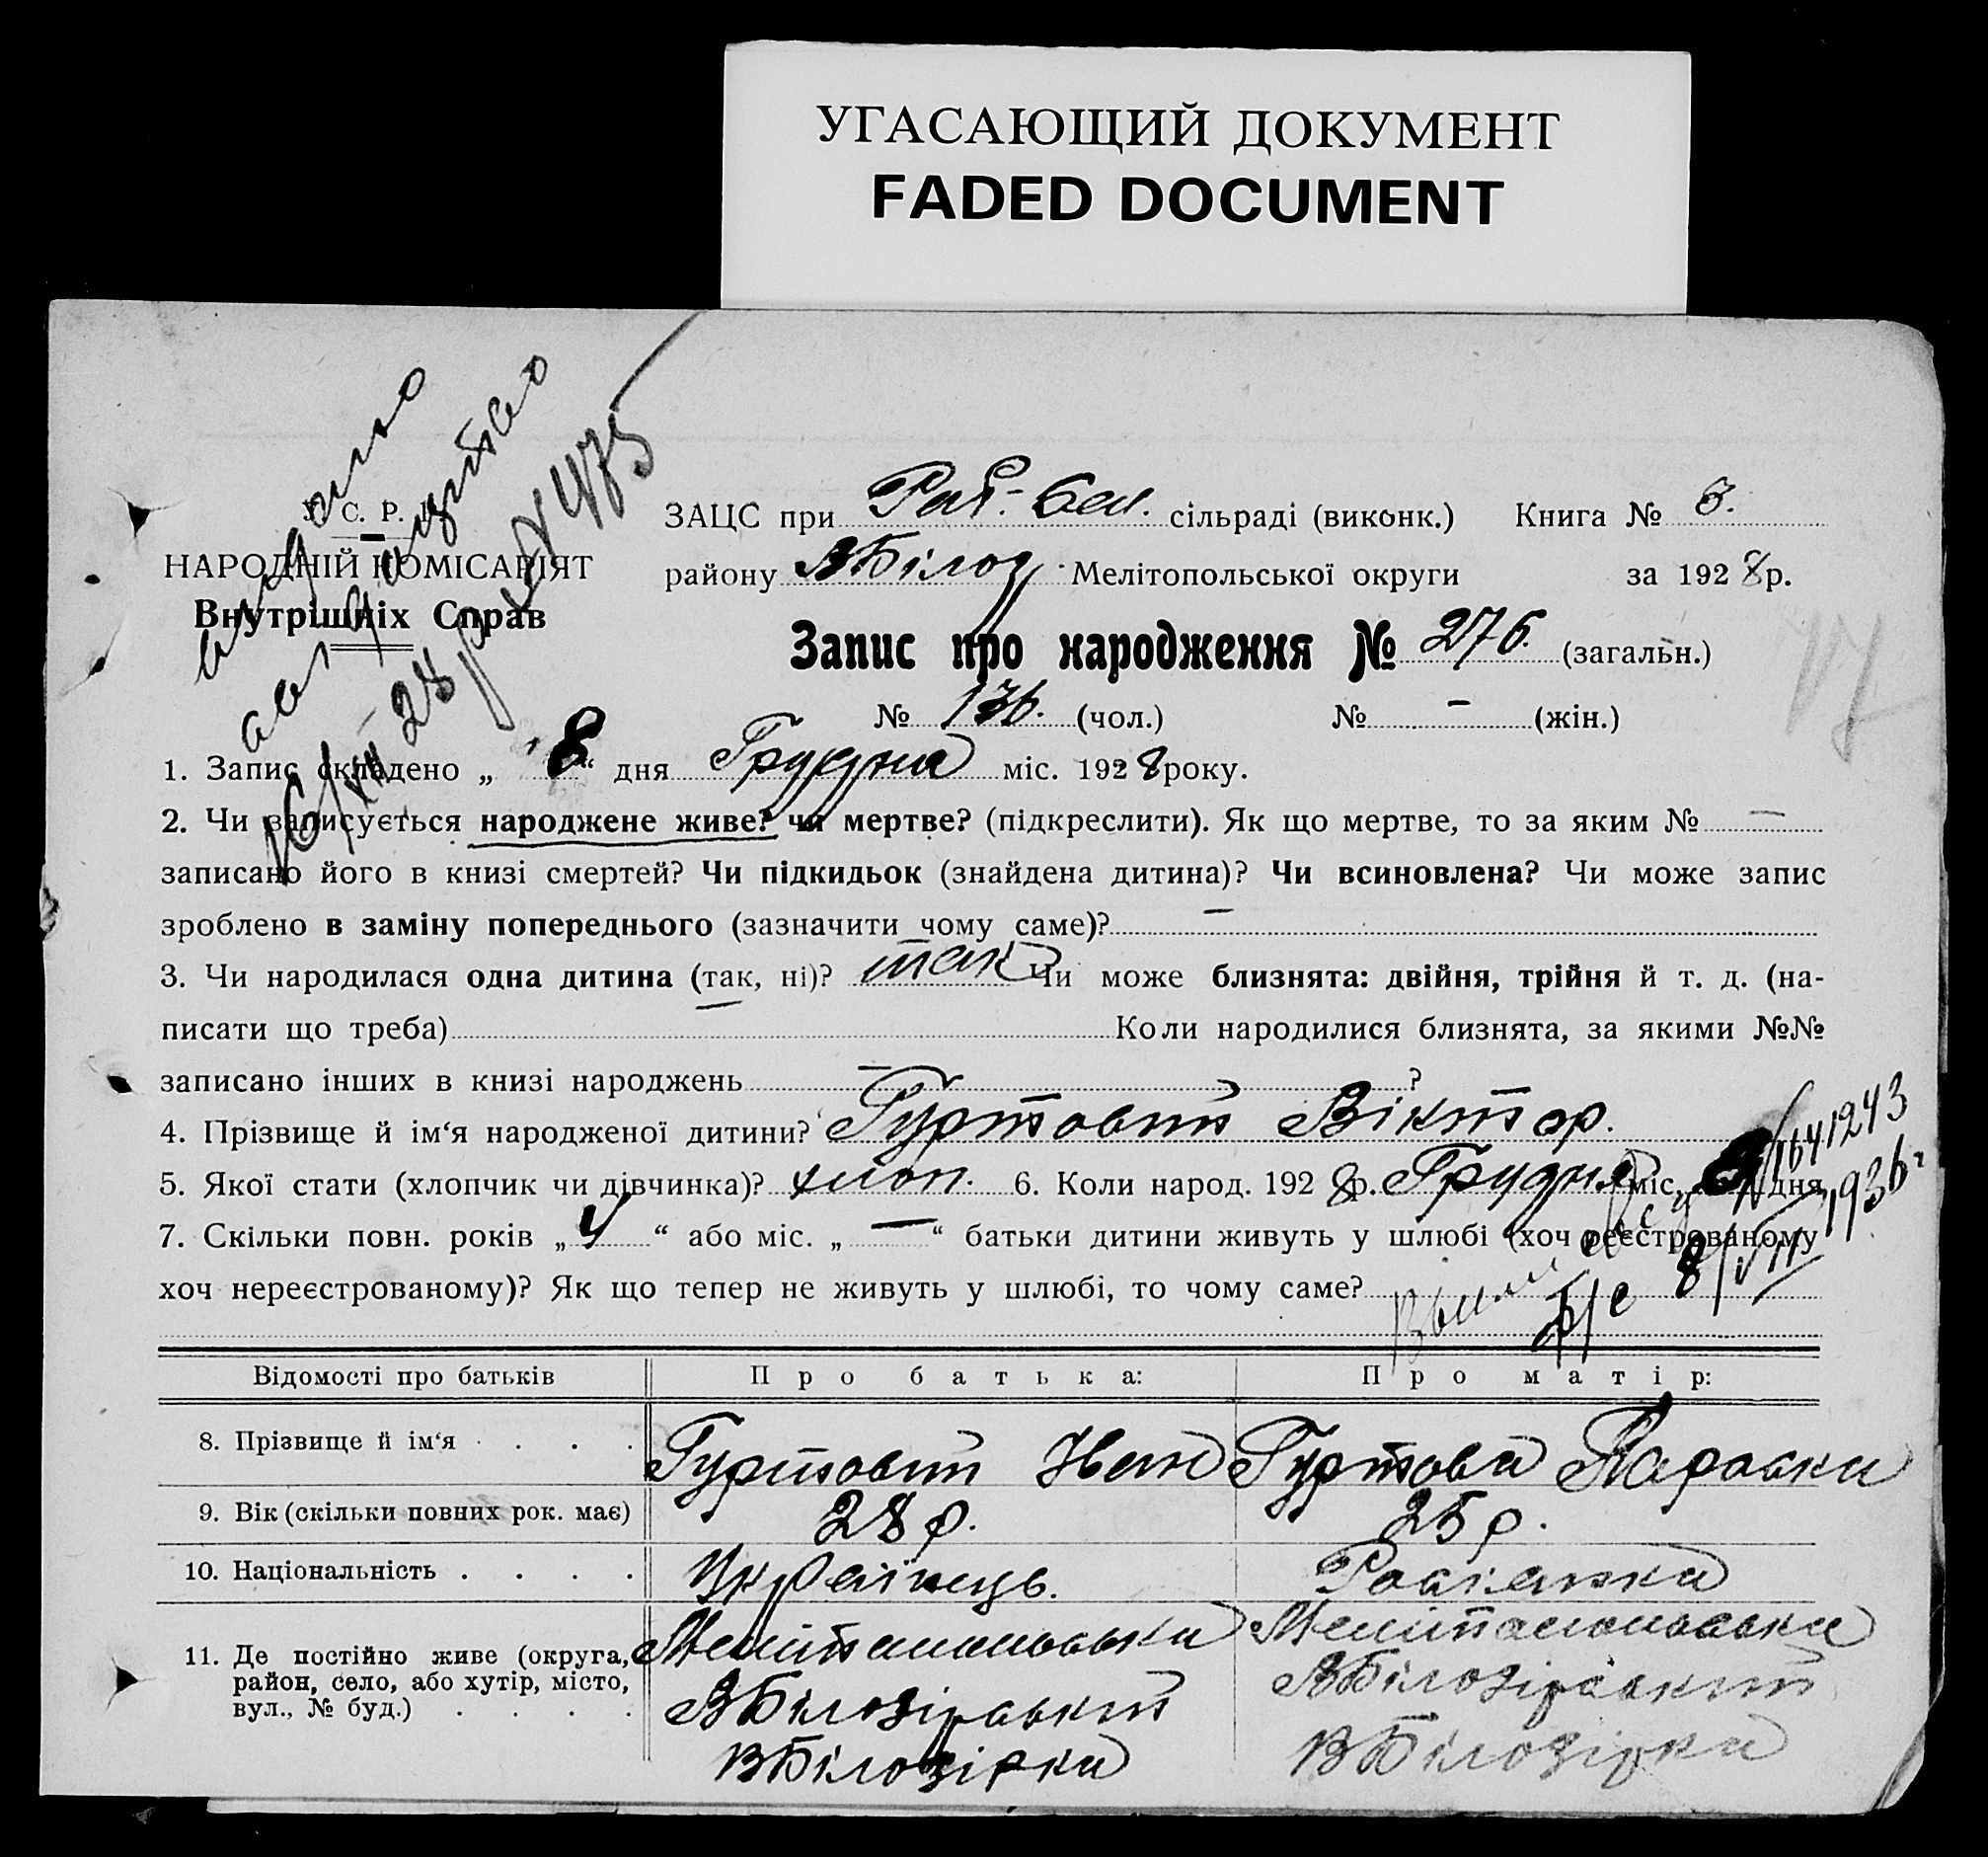 УГАСАЮЩИЙ ДОКУМЕНТ
FADED DOCUMENT
видано
16/XII 28 р. № 475
У. С. Р. Р.
НАРОДНІЙ КОМІСАРІЯТ
Внутрішніх Справ
ЗАЦС при Рай. сільраді (виконк.) Книга № 3.
району ВБілоз. Мелітопольської округи за 1928 р.
Запис про народження № 276. (загальн.)
№ 136. (чол.) № – (жін.)
17
1. Запис складено „8“ дня Грудня міс. 1928 року.
2. Чи записується народжене живе? чи мертве? (підкреслити). Як що мертве, то за яким № –
записано його в книзі смертей? Чи підкидьок (знайдена дитина)? Чи всиновлена? Чи може запис
зроблено в заміну попереднього (зазначити чому саме)? –
3. Чи народилася одна дитина (так, ні)? так Чи може близнята: двійня, трійня й т. д. (на-
писати що треба) – Коли народилися близнята, за якими №№
записано інших в книзі народжень – ?
4. Прізвище й ім‘я народженої дитини? Гуртовий Віктор.
5. Якої стати (хлопчик чи дівчинка)? хлоп. 6. Коли народ. 1928 р. Грудня міс. дня
7. Скільки повн. років „ “ або міс. „—“ батьки дитини живуть у шлюбі (хоч реєстрованому
хоч нереєстрованому)? Як що тепер не живуть у шлюбі, то чому саме?
№ 1641243
8/VII 1936 г
Відомості про батьків Про батька: Про матір:
8. Прізвище й ім‘я . . . . Гуртовий Иван Гуртова Параска
9. Вік (скільки повних рок. має) 28 р. 25 р.
10. Національність . . . . Українець. Росіянка
11. Де постійно живе (округа, район, село, або хутір, місто, вул., № буд.) . . . . Мелітопольська Мелітопольська
ВБілозірський ВБілозірський
ВБілозірка ВБілозірка